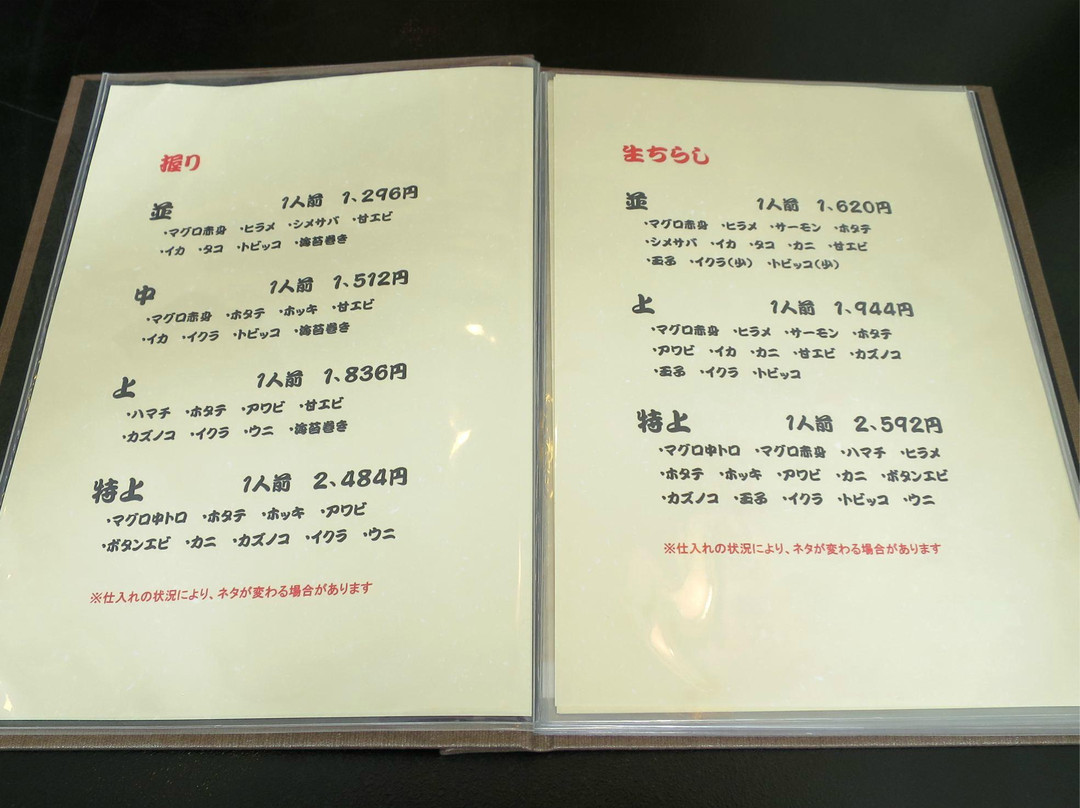 握り
並 1人前 1、296円
・マグロ赤身 ・ヒラメ ・シメサバ ・甘エビ
・イカ ・タコ ・トビッコ ・海苔巻き
中 1人前 1、512円
・マグロ赤身 ・ホタテ ・ホッキ ・甘エビ
・イカ ・イクラ ・トビッコ ・海苔巻き
上 1人前 1、836円
・ハマチ ・ホタテ ・アワビ ・甘エビ
・カズノコ ・イクラ ・ウニ ・海苔巻き
特上 1人前 2、484円
・マグロ中トロ ・ホタテ ・ホッキ ・アワビ
・ボタンエビ ・カニ ・カズノコ ・イクラ ・ウニ
※仕入れの状況により、ネタが変わる場合があります
生ちらし
並 1人前 1、620円
・マグロ赤身 ・ヒラメ ・サーモン ・ホタテ
・シメサバ ・イカ ・タコ ・カニ ・甘エビ
・玉子 ・イクラ(少) ・トビッコ(少)
上 1人前 1、944円
・マグロ赤身 ・ヒラメ ・サーモン ・ホタテ
・アワビ ・イカ ・カニ ・甘エビ ・カズノコ
・玉子 ・イクラ ・トビッコ
特上 1人前 2、592円
・マグロ中トロ ・マグロ赤身 ・ハマチ ・ヒラメ
・ホタテ ・ホッキ ・アワビ ・カニ ・ボタンエビ
・カズノコ ・玉子 ・イクラ ・トビッコ ・ウニ
※仕入れの状況により、ネタが変わる場合があります